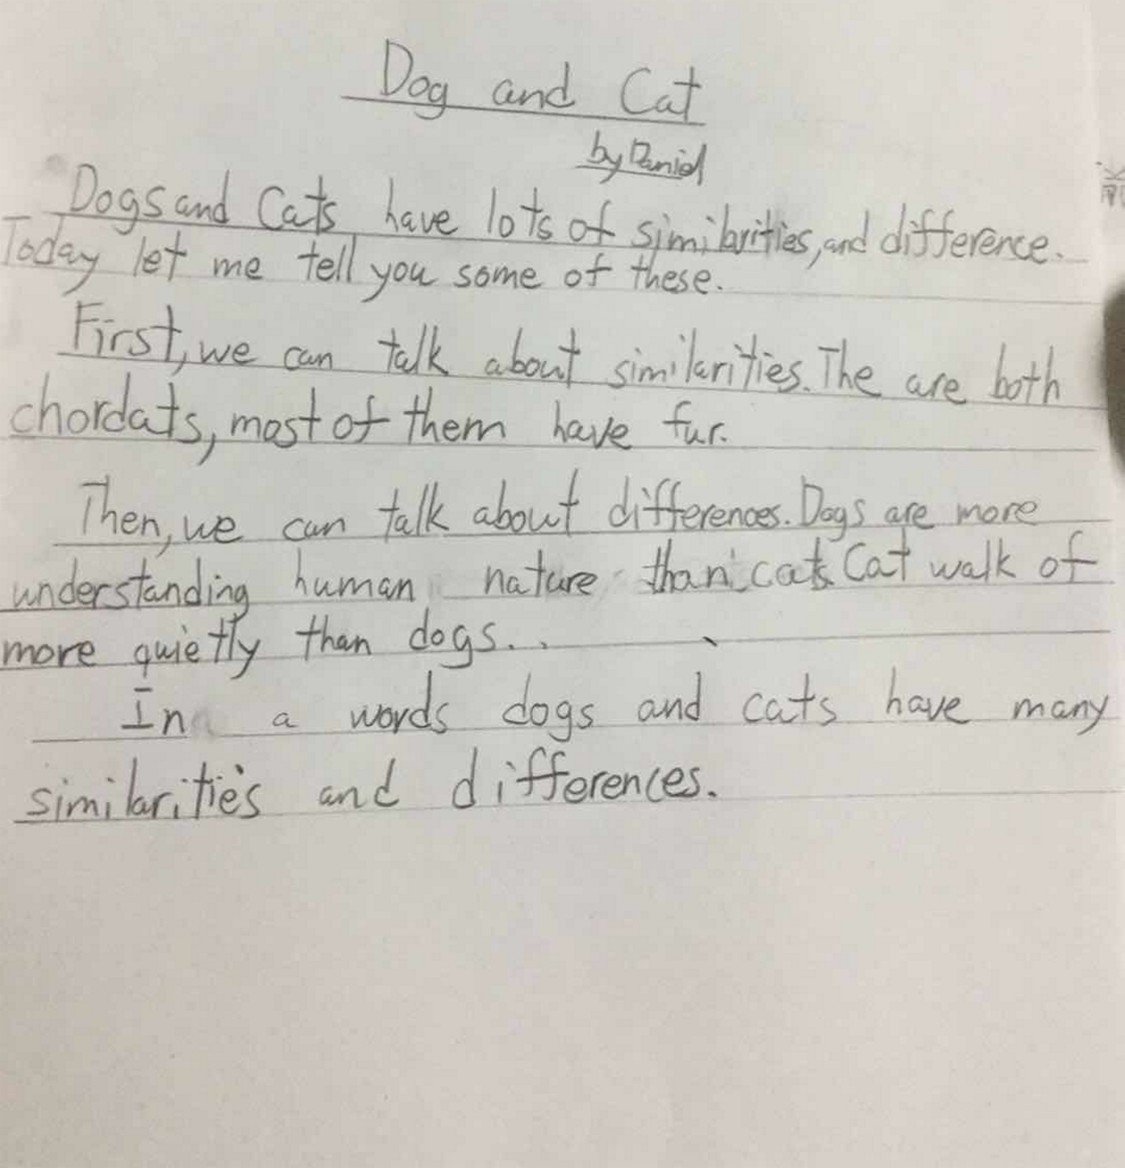 Dog and Cat
by Daniel
Dogs and Cats have lots of similarities, and difference.
Today let me tell you some of these.
First, we can talk about similarities. The are both
chordats, most of them have fur.
Then, we can talk about differences. Dogs are more
understanding human nature than cats. Cat walk of
more quietly than dogs..
In a words dogs and cats have many
similarities and differences.